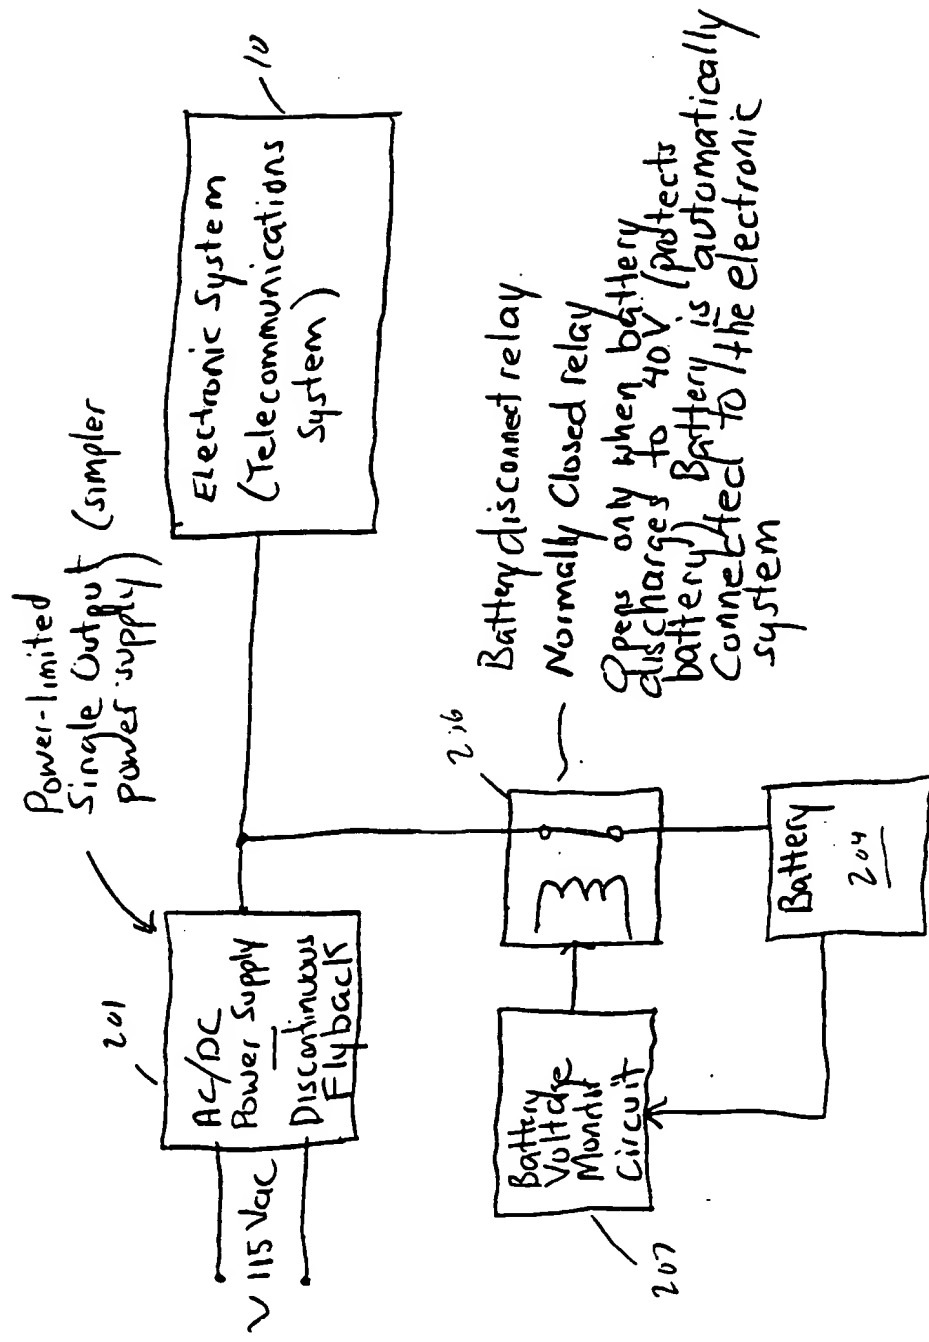 Power-limited
Single Output (simpler
power supply)
201
AC/DC
Power Supply
Discontinuous
Flyback
115 Vac
Electronic System
(Telecommunications
System)
10
Battery disconnect relay
Normally Closed relay
Opens only when battery
discharges to 40V (protects
battery) Battery is automatically
Connected to the electronic
system
216
Battery
Voltage
Monitor
Circuit
207
Battery
204